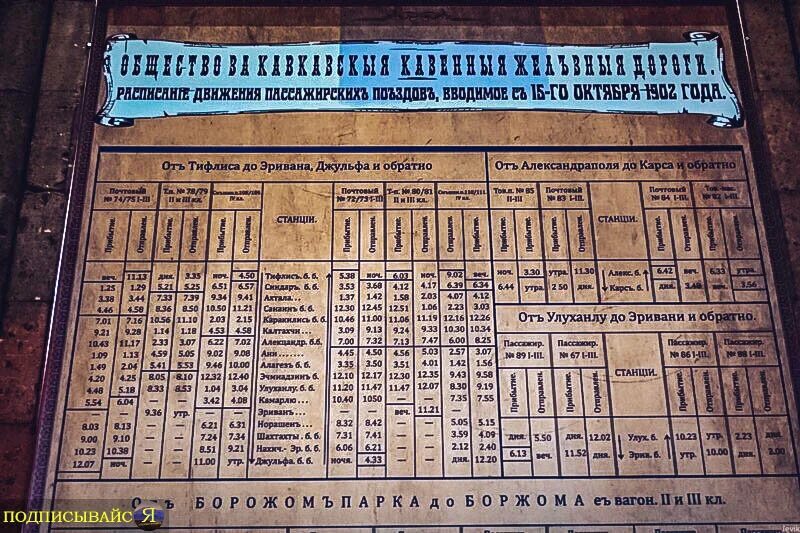 ОБЩЕСТВО ВА КАВКАВСКЫЯ КАВЕННЫЯ ЖЕЛѢВНЫЯ ДОРОГИ.
РАСПИСАНІЕ ДВИЖЕНИЯ ПАССАЖИРСКИХЪ ПОѢЗДОВЪ, ВВОДИМОЕ СЪ 15-ГО ОКТЯБРЯ 1902 ГОДА.
Отъ Тифлиса до Эривана, Джульфа и обратно
Почтовый № 74/75 I-III
Т.п. № 78/79 II и III кл.
IV кл.
СТАНЦІИ.
Почтовый № 72/73 I-III
Т-п. № 80/81 II и III кл.
IV кл.
Прибытіе. Отправлен. Прибытіе. Отправлен. Прибытіе. Отправлен. Прибытіе. Отправлен. Прибытіе. Отправлен. Прибытіе. Отправлен.
веч. 11.13 дня. 3.35 ноч. 4.50 Тифлисъ. б. б. 5.38 ноч. 6.03 ноч. 9.02 веч.
1.25 1.29 5.21 5.25 6.51 6.57 Сандаръ. б. б. 3.53 3.68 4.12 4.17 6.39 6.34
3.38 3.44 7.33 7.39 9.34 9.41 Актала. . . 1.37 1.42 1.58 2.03 4.07 4.12
4.46 4.58 8.36 8.50 10.50 11.21 Санаинъ б. б. 12.30 12.45 12.51 1.06 2.35 3.03
7.01 7.16 10.56 11.10 2.03 2.15 Каракилисъ б. б. 10.46 11.00 11.06 11.19 12.16 12.26
9.21 9.28 1.14 1.18 4.53 4.58 Калтахчи . . . 3.09 9.13 9.24 9.33 10.30 10.34
10.43 11.17 2.33 3.07 6.22 7.02 Александр. б.б. 7.00 7.32 7.13 7.47 6.00 8.25
1.09 1.13 4.59 5.05 9.02 9.08 Ани . . . . . . . 4.45 4.50 4.56 5.03 2.57 3.07
1.49 2.04 5.41 5.53 9.46 10.00 Алагезъ б. б. 3.35 3.50 3.51 4.01 1.42 1.56
4.20 4.25 8.05 8.10 12.32 12.40 Эчмиадзинъ б. 12.10 12.17 12.35 9.43 9.58
4.48 5.18 8.33 8.53 1.04 3.04 Улуханлу. б. б. 11.20 11.47 11.47 12.07 8.30 9.19
5.54 6.04 — 3.42 4.08 Камарлю . . . 10.40 1050 — 7.35 7.55
— — 9.36 утр. — — Эриванъ . . . — — веч. 11.21 — —
8.03 8.13 — — 6.21 6.31 Норашенъ . . . 8.32 8.42 — — 5.05 5.15
9.00 9.10 — — 7.24 7.34 Шахтахты б. б. 7.31 7.41 — — 3.59 4.09
10.23 10.38 — — 8.51 9.21 Нахич.- Эр. б. б. 6.06 6.21 — — 2.12 2.40
12.07 ноч. — — 11.00 утр. Джульфа. б. б. ночя. 4.33 — — дня. 12.20
Отъ Александраполя до Карса и обратно
Тов.п. № 85 II-III
Почтовый № 83 I-III.
СТАНЦІИ.
Почтовый № 84 I-III.
Прибытіе. Отправлен. Прибытіе. Отправлен. Прибытіе. Отправлен. Прибытіе. Отправлен.
ноч. 3.30 утра. 11.30 Алекс. б. 6.42 веч. 6.33 утра.
6.44 утр. 2 50 дня. Карсъ. б. дня. 3.48 ноч. 3.56
Отъ Улуханлу до Эривани и обратно.
Пассажир. № 89 I-III.
Пассажир. № 67 I-III.
СТАНЦІИ.
Пассажир. № 86 I-III.
Пассажир. № 88 I-III.
Прибытіе. Отправлен. Прибытіе. Отправлен. Прибытіе. Отправлен. Прибытіе. Отправлен.
дня. 5.50 дня. 12.02 Улух. б. 10.23 утр. 2.23 дня.
6.13 веч. 11.52 дня. Эрив. б. утр. 10.00 дня. 2.00
Отъ БОРОЖОМЪПАРКА до БОРЖОМА еъ вагон. II и III кл.
ПОДПИСЫВАЙСЯ